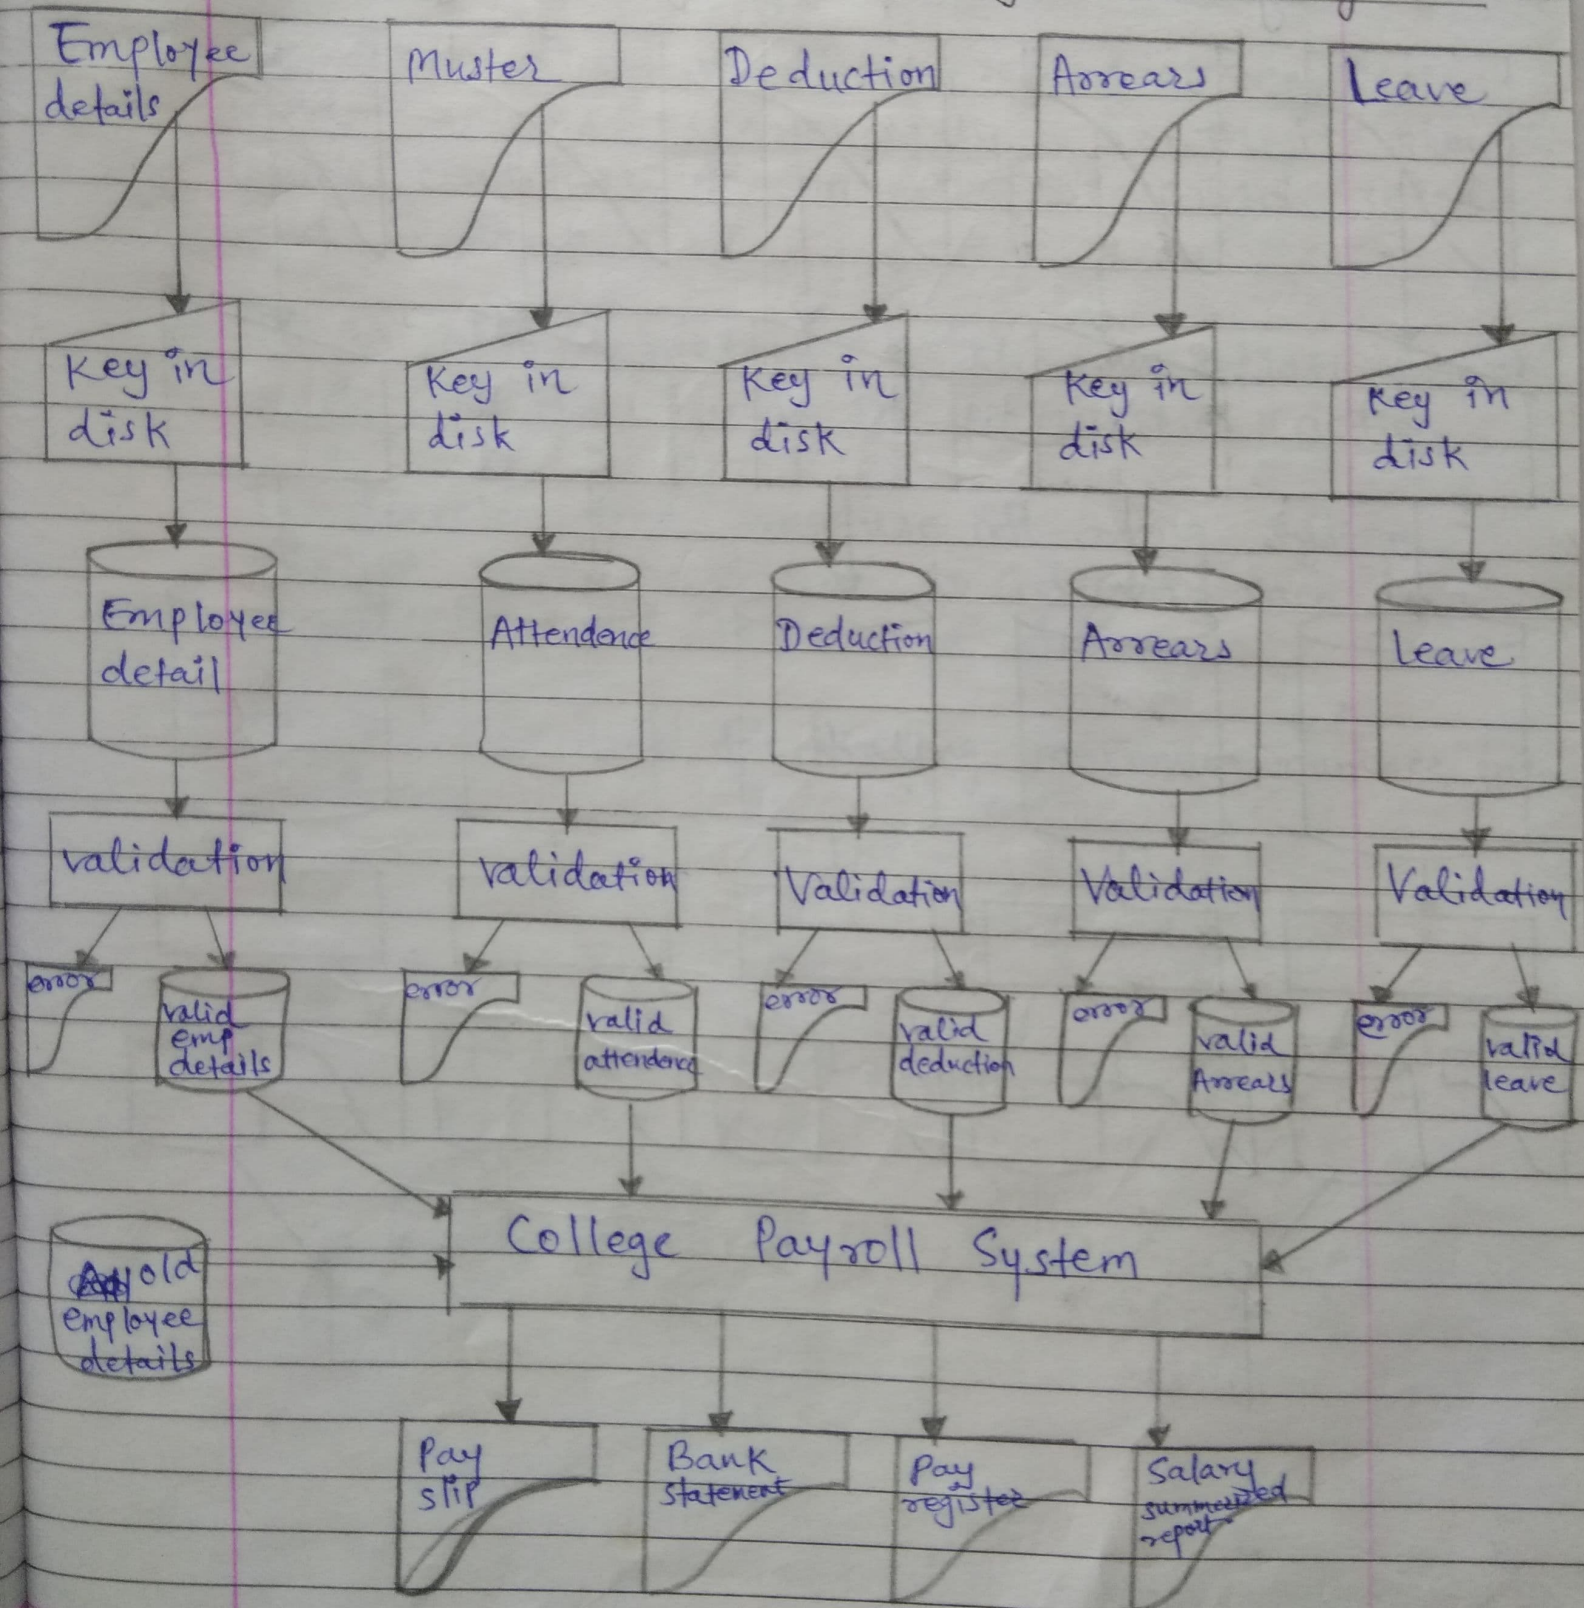 Employee
details
Muster
Deduction
Arrears
Leave
Key in
disk
Key in
disk
Key in
disk
Key in
disk
Key in
disk
Employee
detail
Attendence
Deduction
Arrears
Leave
validation
validation
Validation
Validation
Validation
error
valid
emp
details
error
valid
attendence
error
valid
deduction
error
valid
Arrears
error
valid
leave
College Payroll System
old
employee
details
Pay
slip
Bank
statement
Pay
register
Salary
summerized
report